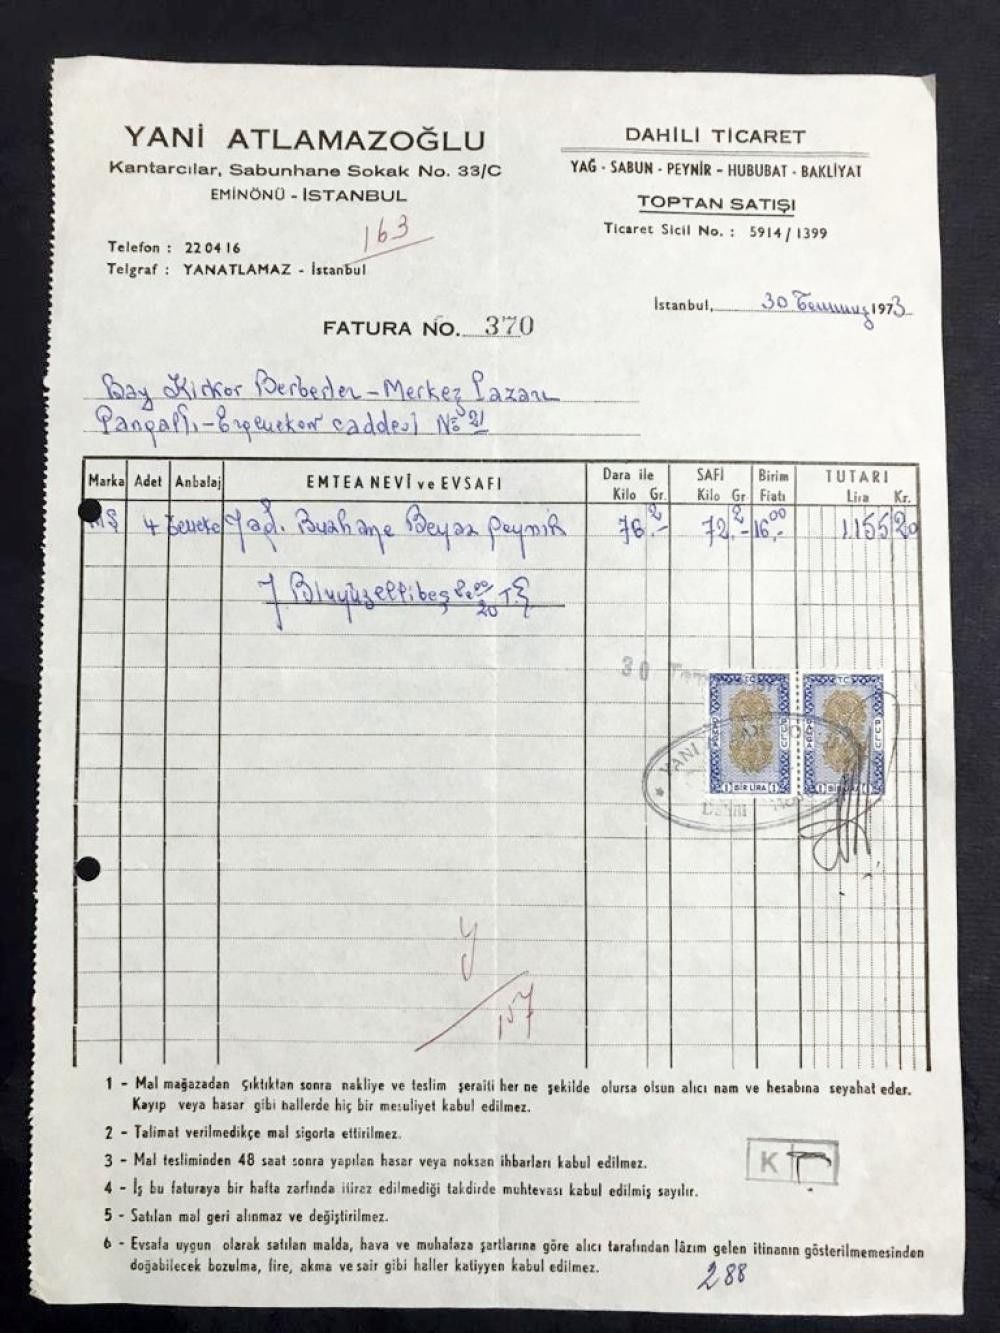 YANİ ATLAMAZOĞLU
Kantarcılar, Sabunhane Sokak No. 33/C
EMİNÖNÜ - İSTANBUL
DAHİLİ TİCARET
YAĞ - SABUN - PEYNİR - HUBUBAT - BAKLİYAT
TOPTAN SATIŞI
Ticaret Sicil No. : 5914 / 1399
163
Telefon : 22 04 16
Telgraf : YANATLAMAZ - İstanbul
İstanbul, 30 Temmuz 1973
FATURA NO. 370
Bay Kirkor Berberler - Merkez Pazarı
Pangaltı - Ergenekon caddesi No 21
Marka Adet Anbalaj EMTEA NEVİ ve EVSAFI Dara ile Kilo Gr. SAFİ Kilo Gr Birim Fiatı TUTARI Lira Kr.
4 Teneke Yağ. Beyaz Peynir 76.- 72.- 16.- 1.155 20
Binyüzellibeş 20
30
YANİ
TC TC
DAMGA PULU DAMGA PULU
1 BİR LİRA 1 1 BİR LİRA 1
157
1 - Mal mağazadan çıktıktan sonra nakliye ve teslim şeraiti her ne şekilde olursa olsun alıcı nam ve hesabına seyahat eder.
Kayıp veya hasar gibi hallerde hiç bir mesuliyet kabul edilmez.
2 - Talimat verilmedikçe mal sigorta ettirilmez.
3 - Mal tesliminden 48 saat sonra yapılan hasar veya noksan ihbarları kabul edilmez.
4 - İş bu faturaya bir hafta zarfında itiraz edilmediği takdirde muhtevası kabul edilmiş sayılır.
5 - Satılan mal geri alınmaz ve değiştirilmez.
6 - Evsafa uygun olarak satılan malda, hava ve muhafaza şartlarına göre alıcı tarafından lâzım gelen itinanın gösterilmemesinden
doğabilecek bozulma, fire, akma ve sair gibi haller katiyyen kabul edilmez.
K
288